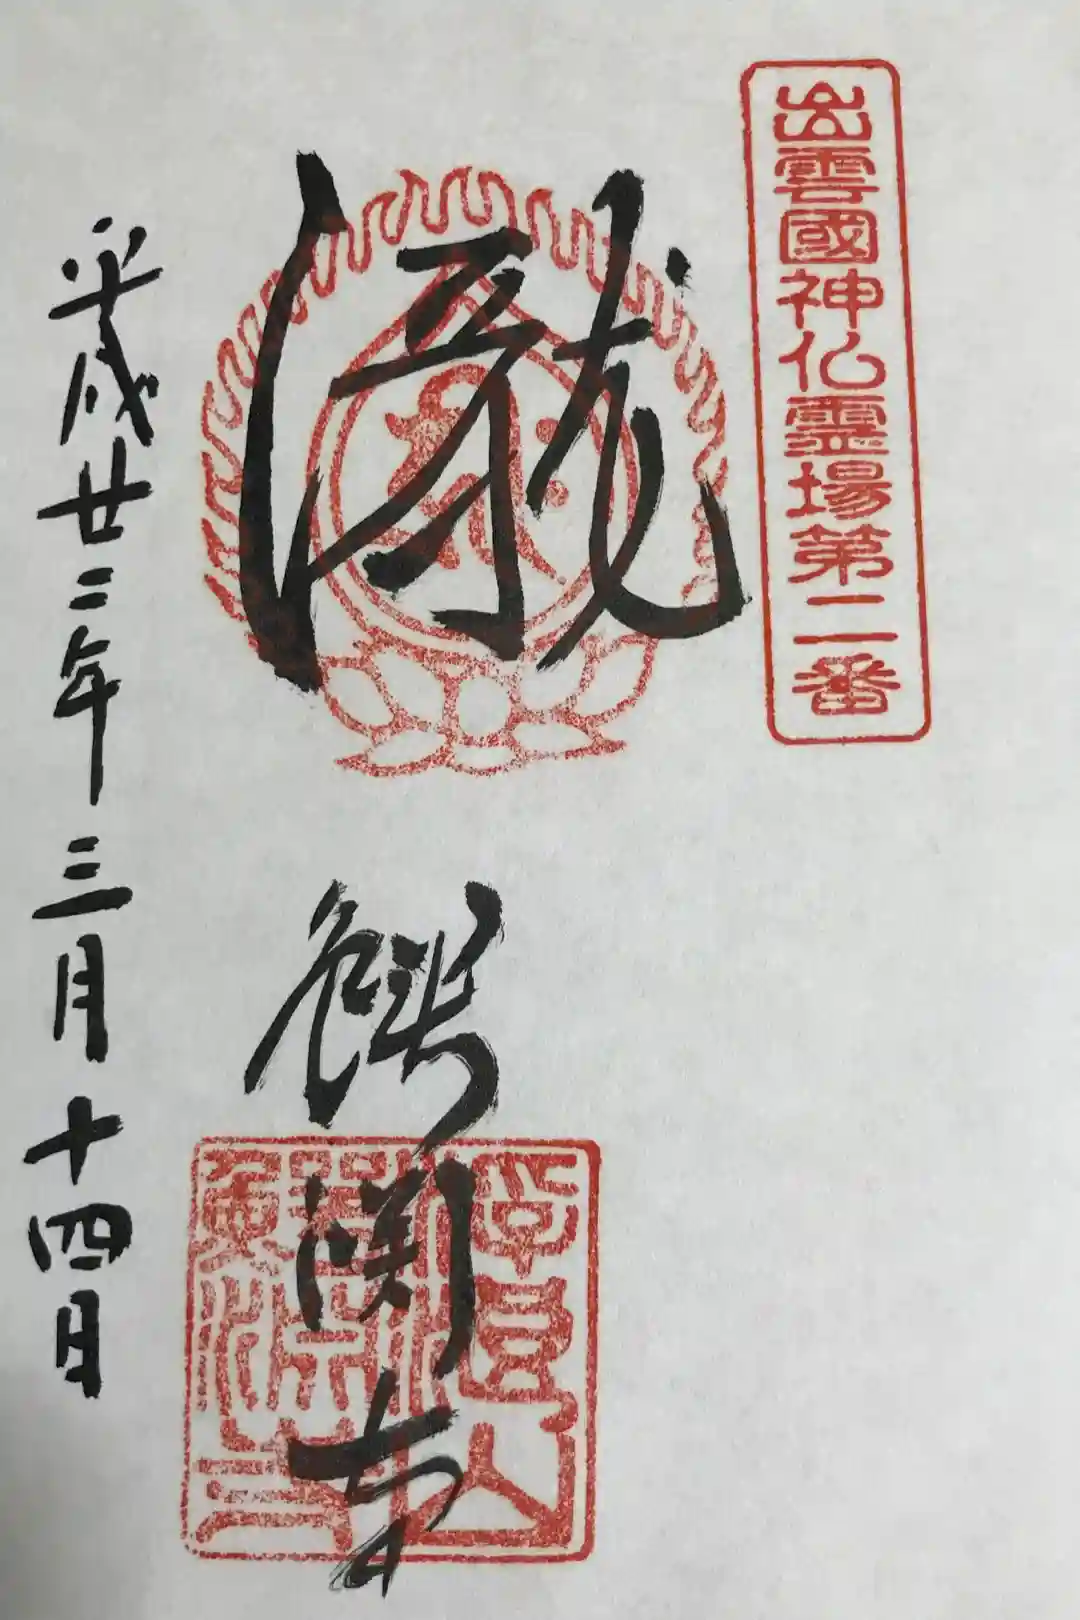 出雲國神仏霊場第二番
瀧
鰐淵寺
平成廿二年三月十四日